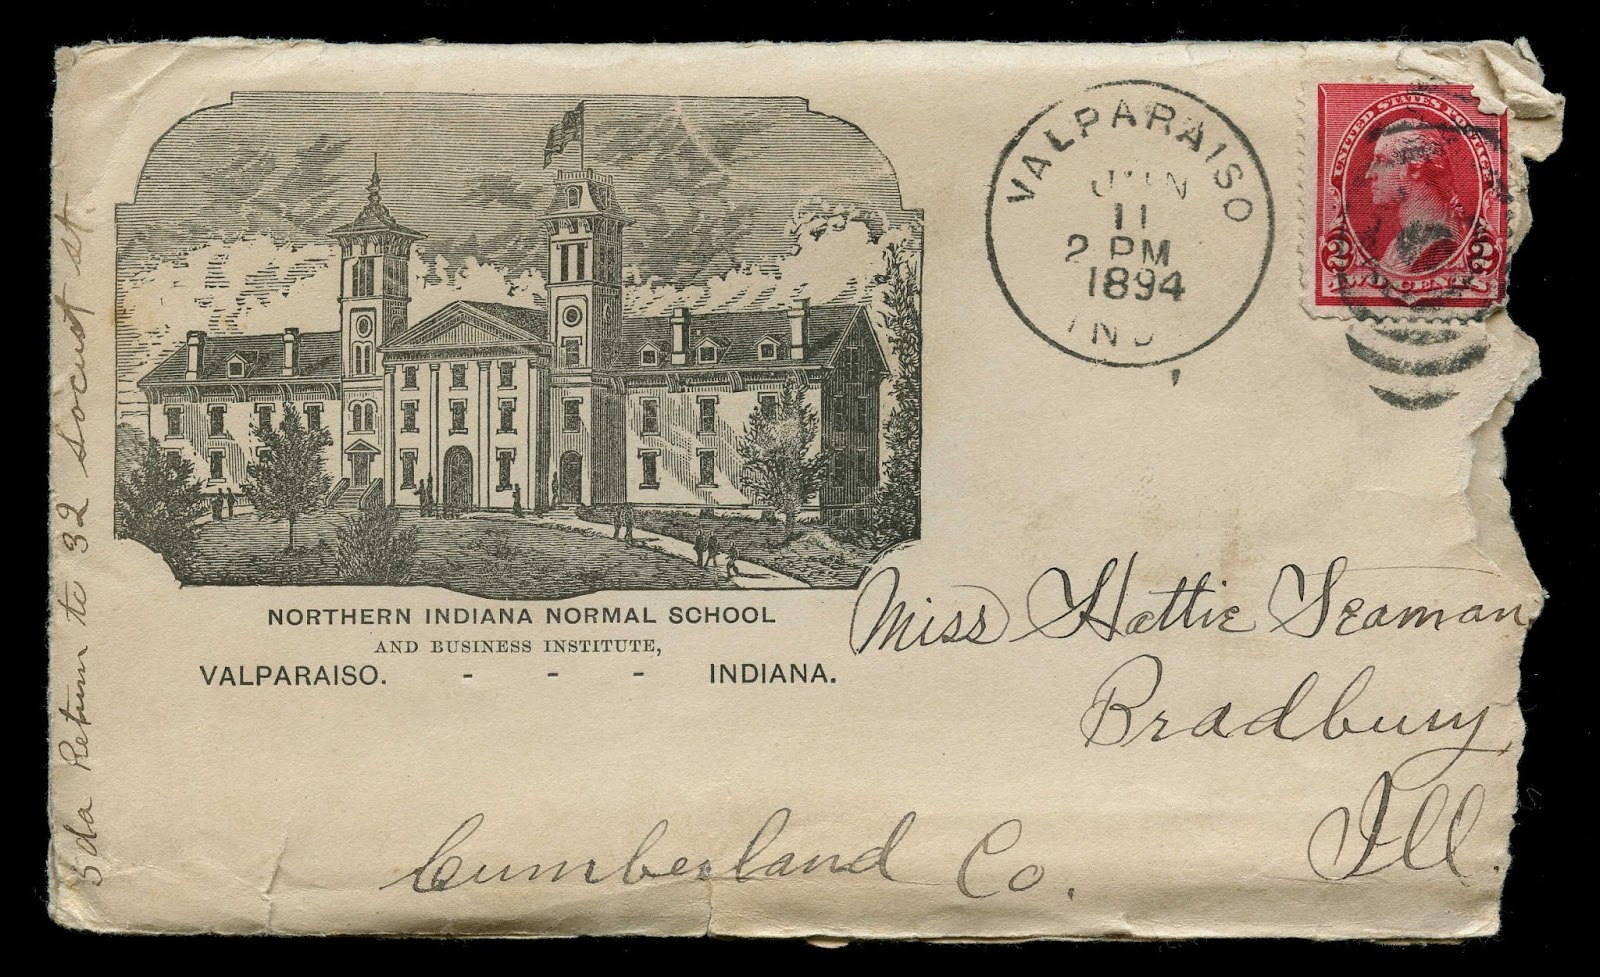 5 da Return to 32 Locust st.
NORTHERN INDIANA NORMAL SCHOOL
AND BUSINESS INSTITUTE,
VALPARAISO. - - - INDIANA.
VALPARAISO
JUN
11
2 PM
1894
IND
UNITED STATES POSTAGE
2 2
TWO CENTS
Miss Hattie Seaman
Bradbury
Ill.
Cumberland Co.